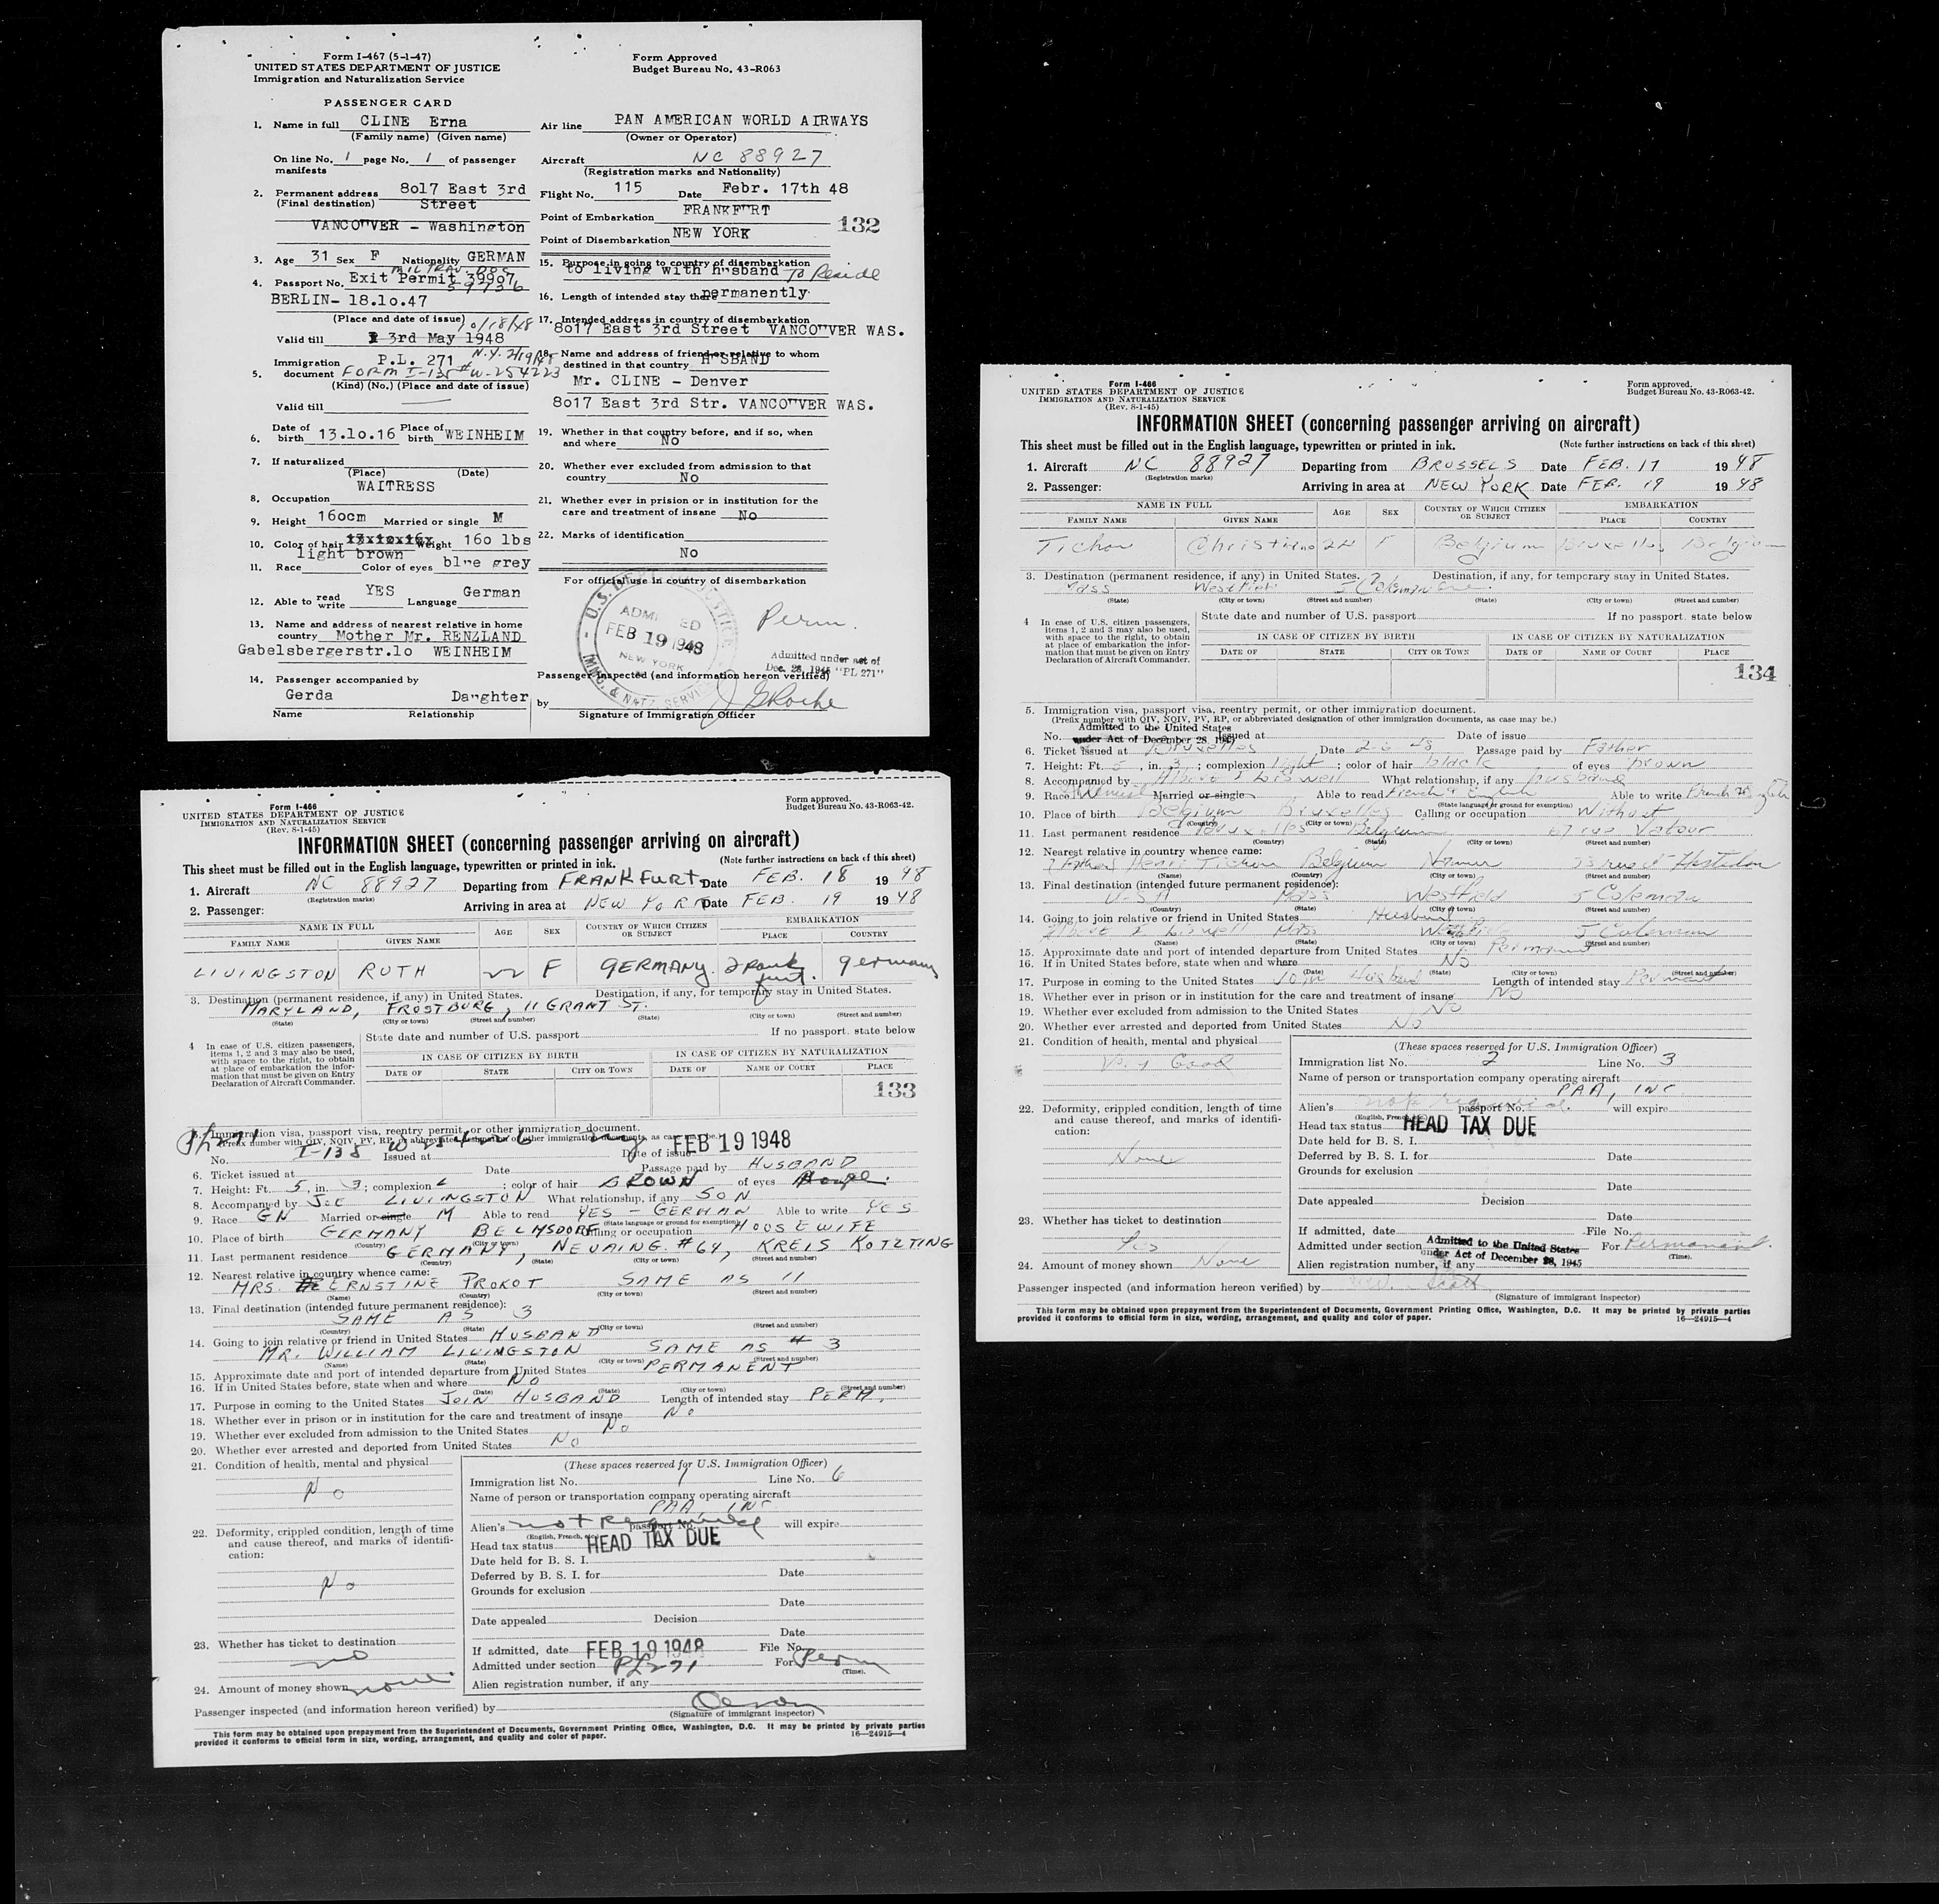 Form I-467 (5-1-47)
UNITED STATES DEPARTMENT OF JUSTICE
Immigration and Naturalization Service
Form Approved
Budget Bureau No. 43-R063
PASSENGER CARD
1. Name in full CLINE Erna
(Family name) (Given name)
On line No. 1 page No. 1 of passenger
manifests
2. Permanent address 8o17 East 3rd
(Final destination) Street
VANCOUVER - Washington
3. Age 31 Sex F Nationality GERMAN
MIL TRAV. DOC
4. Passport No. Exit Permit 39907
59736
BERLIN- 18.1o.47
(Place and date of issue) 10/18/48
Valid till 3rd May 1948
Immigration P.L. 271 N.Y. 2/19/48
5. document FORM I-135 #W-254223
(Kind) (No.) (Place and date of issue)
Valid till
6. Date of birth 13.1o.16 Place of birth WEINHEIM
7. If naturalized
(Place) (Date)
WAITRESS
8. Occupation
9. Height 16ocm Married or single M
10. Color of hair Weight 16o lbs
light brown
11. Race Color of eyes blue grey
12. Able to read write YES Language German
13. Name and address of nearest relative in home
country Mother Mr. RENZLAND
Gabelsbergerstr.lo WEINHEIM
14. Passenger accompanied by
Gerda Daughter
Name Relationship
Air line PAN AMERICAN WORLD AIRWAYS
(Owner or Operator)
Aircraft NC 88927
(Registration marks and Nationality)
Flight No. 115 Date Febr. 17th 48
Point of Embarkation FRANKFURT
132
Point of Disembarkation NEW YORK
15. Purpose in going to country of disembarkation
to living with husband To Reside
16. Length of intended stay there permanently
17. Intended address in country of disembarkation
8o17 East 3rd Street VANCOUVER WAS.
18. Name and address of friend or relative to whom
destined in that country HUSBAND
Mr. CLINE - Denver
8o17 East 3rd Str. VANCOUVER WAS.
19. Whether in that country before, and if so, when
and where No
20. Whether ever excluded from admission to that
country No
21. Whether ever in prision or in institution for the
care and treatment of insane No
22. Marks of identification
No
For official use in country of disembarkation
ADMITTED
FEB 19 1948
NEW YORK
IMMG. & NATZ. SERVICE
Perm.
Admitted under act of
Dec. 28, 1945 "PL 271"
Passenger inspected (and information hereon verified)
by J G Roche
Signature of Immigration Officer
Form I-466
UNITED STATES DEPARTMENT OF JUSTICE
IMMIGRATION AND NATURALIZATION SERVICE
(Rev. 8-1-45)
Form approved.
Budget Bureau No. 43-R063-42.
INFORMATION SHEET (concerning passenger arriving on aircraft)
This sheet must be filled out in the English language, typewritten or printed in ink. (Note further instructions on back of this sheet)
1. Aircraft NC 88927 Departing from FRANKFURT Date FEB. 18 1948
(Registration marks)
2. Passenger: Arriving in area at NEW YORK Date FEB. 19 1948
NAME IN FULL AGE SEX COUNTRY OF WHICH CITIZEN OR SUBJECT EMBARKATION
FAMILY NAME GIVEN NAME PLACE COUNTRY
LIVINGSTON RUTH 22 F GERMANY Frankfurt. Germany
3. Destination (permanent residence, if any) in United States. Destination, if any, for temporary stay in United States.
MARYLAND, FROSTBURG, 11 GRANT ST.
(State) (City or town) (Street and number) (State) (City or town) (Street and number)
4 In case of U.S. citizen passengers, items 1, 2 and 3 may also be used, with space to the right, to obtain at place of embarkation the information that must be given on Entry Declaration of Aircraft Commander.
State date and number of U.S. passport If no passport. state below
IN CASE OF CITIZEN BY BIRTH IN CASE OF CITIZEN BY NATURALIZATION
DATE OF STATE CITY OR TOWN DATE OF NAME OF COURT PLACE
133
5. Immigration visa, passport visa, reentry permit, or other immigration document.
(Prefix number with QIV, NQIV, PV, RP, or abbreviated designation of other immigration documents, as case may be.)
No. I-138 Issued at Date of issue FEB 19 1948
6. Ticket issued at Date Passage paid by HUSBAND
7. Height: Ft. 5, in. 3; complexion L; color of hair BROWN of eyes
8. Accompanied by JOE LIVINGSTON What relationship, if any SON
9. Race GN Married or single M Able to read YES - GERMAN Able to write YES
(State language or ground for exemption)
10. Place of birth GERMANY BELMSDORF Calling or occupation HOUSEWIFE
(Country) (City or town)
11. Last permanent residence GERMANY, NEUAING. #64, KREIS KOTZTING
(Country) (State) (City or town) (Street and number)
12. Nearest relative in country whence came:
MRS. ERNSTINE PROKOT SAME AS 11
(Name) (Country) (City or town) (Street and number)
13. Final destination (intended future permanent residence):
SAME AS 3
(Country) (State) (City or town) (Street and number)
14. Going to join relative or friend in United States HUSBAND
MR. WILLIAM LIVINGSTON SAME AS # 3
(Name) (State) (City or town) (Street and number)
15. Approximate date and port of intended departure from United States PERMANENT
16. If in United States before, state when and where NO
(Date) (State) (City or town) (Street and number)
17. Purpose in coming to the United States JOIN HUSBAND Length of intended stay PERM.
18. Whether ever in prison or in institution for the care and treatment of insane No
19. Whether ever excluded from admission to the United States No
20. Whether ever arrested and deported from United States No
21. Condition of health, mental and physical
No
22. Deformity, crippled condition, length of time and cause thereof, and marks of identification:
No
23. Whether has ticket to destination
no
24. Amount of money shown none
(These spaces reserved for U.S. Immigration Officer)
Immigration list No. 1 Line No. 6
Name of person or transportation company operating aircraft
PAA, INC
Alien's not required passport No. will expire
(English, French, etc.)
Head tax status HEAD TAX DUE
Date held for B. S. I.
Deferred by B. S. I. for Date
Grounds for exclusion
Date
Date appealed Decision
Date
If admitted, date FEB 19 1948 File No.
Admitted under section PL271 For Perm
(Time).
Alien registration number, if any
Passenger inspected (and information hereon verified) by
(Signature of immigrant inspector)
This form may be obtained upon prepayment from the Superintendent of Documents, Government Printing Office, Washington, D.C. It may be printed by private parties
provided it conforms to official form in size, wording, arrangement, and quality and color of paper. 16—24915—4
Form I-466
UNITED STATES DEPARTMENT OF JUSTICE
IMMIGRATION AND NATURALIZATION SERVICE
(Rev. 8-1-45)
Form approved.
Budget Bureau No. 43-R063-42.
INFORMATION SHEET (concerning passenger arriving on aircraft)
This sheet must be filled out in the English language, typewritten or printed in ink. (Note further instructions on back of this sheet)
1. Aircraft NC 88927 Departing from BRUSSELS Date FEB. 17 1948
(Registration marks)
2. Passenger: Arriving in area at NEW YORK Date FEB. 19 1948
NAME IN FULL AGE SEX COUNTRY OF WHICH CITIZEN OR SUBJECT EMBARKATION
FAMILY NAME GIVEN NAME PLACE COUNTRY
Tichon Christiane 24 F Belgium Bruxelles Belgium
3. Destination (permanent residence, if any) in United States. Destination, if any, for temporary stay in United States.
Mass Westfield 5 Coleman
(State) (City or town) (Street and number) (State) (City or town) (Street and number)
4 In case of U.S. citizen passengers, items 1, 2 and 3 may also be used, with space to the right, to obtain at place of embarkation the information that must be given on Entry Declaration of Aircraft Commander.
State date and number of U.S. passport If no passport. state below
IN CASE OF CITIZEN BY BIRTH IN CASE OF CITIZEN BY NATURALIZATION
DATE OF STATE CITY OR TOWN DATE OF NAME OF COURT PLACE
134
5. Immigration visa, passport visa, reentry permit, or other immigration document.
(Prefix number with QIV, NQIV, PV, RP, or abbreviated designation of other immigration documents, as case may be.)
Admitted to the United States
No. under Act of December 28, 1945 Issued at Date of issue
6. Ticket issued at Bruxelles Date 2-6 48 Passage paid by Father
7. Height: Ft. 5, in. 3; complexion light; color of hair black of eyes brown
8. Accompanied by What relationship, if any husband
9. Race Married or single Able to read French & English Able to write French & English
(State language or ground for exemption)
10. Place of birth Belgium Bruxelles Calling or occupation Without
(Country) (City or town)
11. Last permanent residence Bruxelles Belgium 67 rue
(Country) (State) (City or town) (Street and number)
12. Nearest relative in country whence came:
Father Henri Tichon Belgium Namur
(Name) (Country) (City or town) (Street and number)
13. Final destination (intended future permanent residence):
USA Mass Westfield 5 Coleman
(Country) (State) (City or town) (Street and number)
14. Going to join relative or friend in United States Husband
Mass Westfield 5 Coleman
(Name) (State) (City or town) (Street and number)
15. Approximate date and port of intended departure from United States Permanent
16. If in United States before, state when and where No
(Date) (State) (City or town) (Street and number)
17. Purpose in coming to the United States Join Husband Length of intended stay Permanent
18. Whether ever in prison or in institution for the care and treatment of insane No
19. Whether ever excluded from admission to the United States No
20. Whether ever arrested and deported from United States No
21. Condition of health, mental and physical
Very Good
22. Deformity, crippled condition, length of time and cause thereof, and marks of identification:
None
23. Whether has ticket to destination
Yes
24. Amount of money shown None
(These spaces reserved for U.S. Immigration Officer)
Immigration list No. 2 Line No. 3
Name of person or transportation company operating aircraft
PAA, INC
Alien's not required passport No. will expire
(English, French, etc.)
Head tax status HEAD TAX DUE
Date held for B. S. I.
Deferred by B. S. I. for Date
Grounds for exclusion
Date
Date appealed Decision
Date
If admitted, date File No.
Admitted under section Admitted to the United States under Act of December 28, 1945 For Permanent.
(Time).
Alien registration number, if any
Passenger inspected (and information hereon verified) by
(Signature of immigrant inspector)
This form may be obtained upon prepayment from the Superintendent of Documents, Government Printing Office, Washington, D.C. It may be printed by private parties
provided it conforms to official form in size, wording, arrangement, and quality and color of paper. 16—24915—4